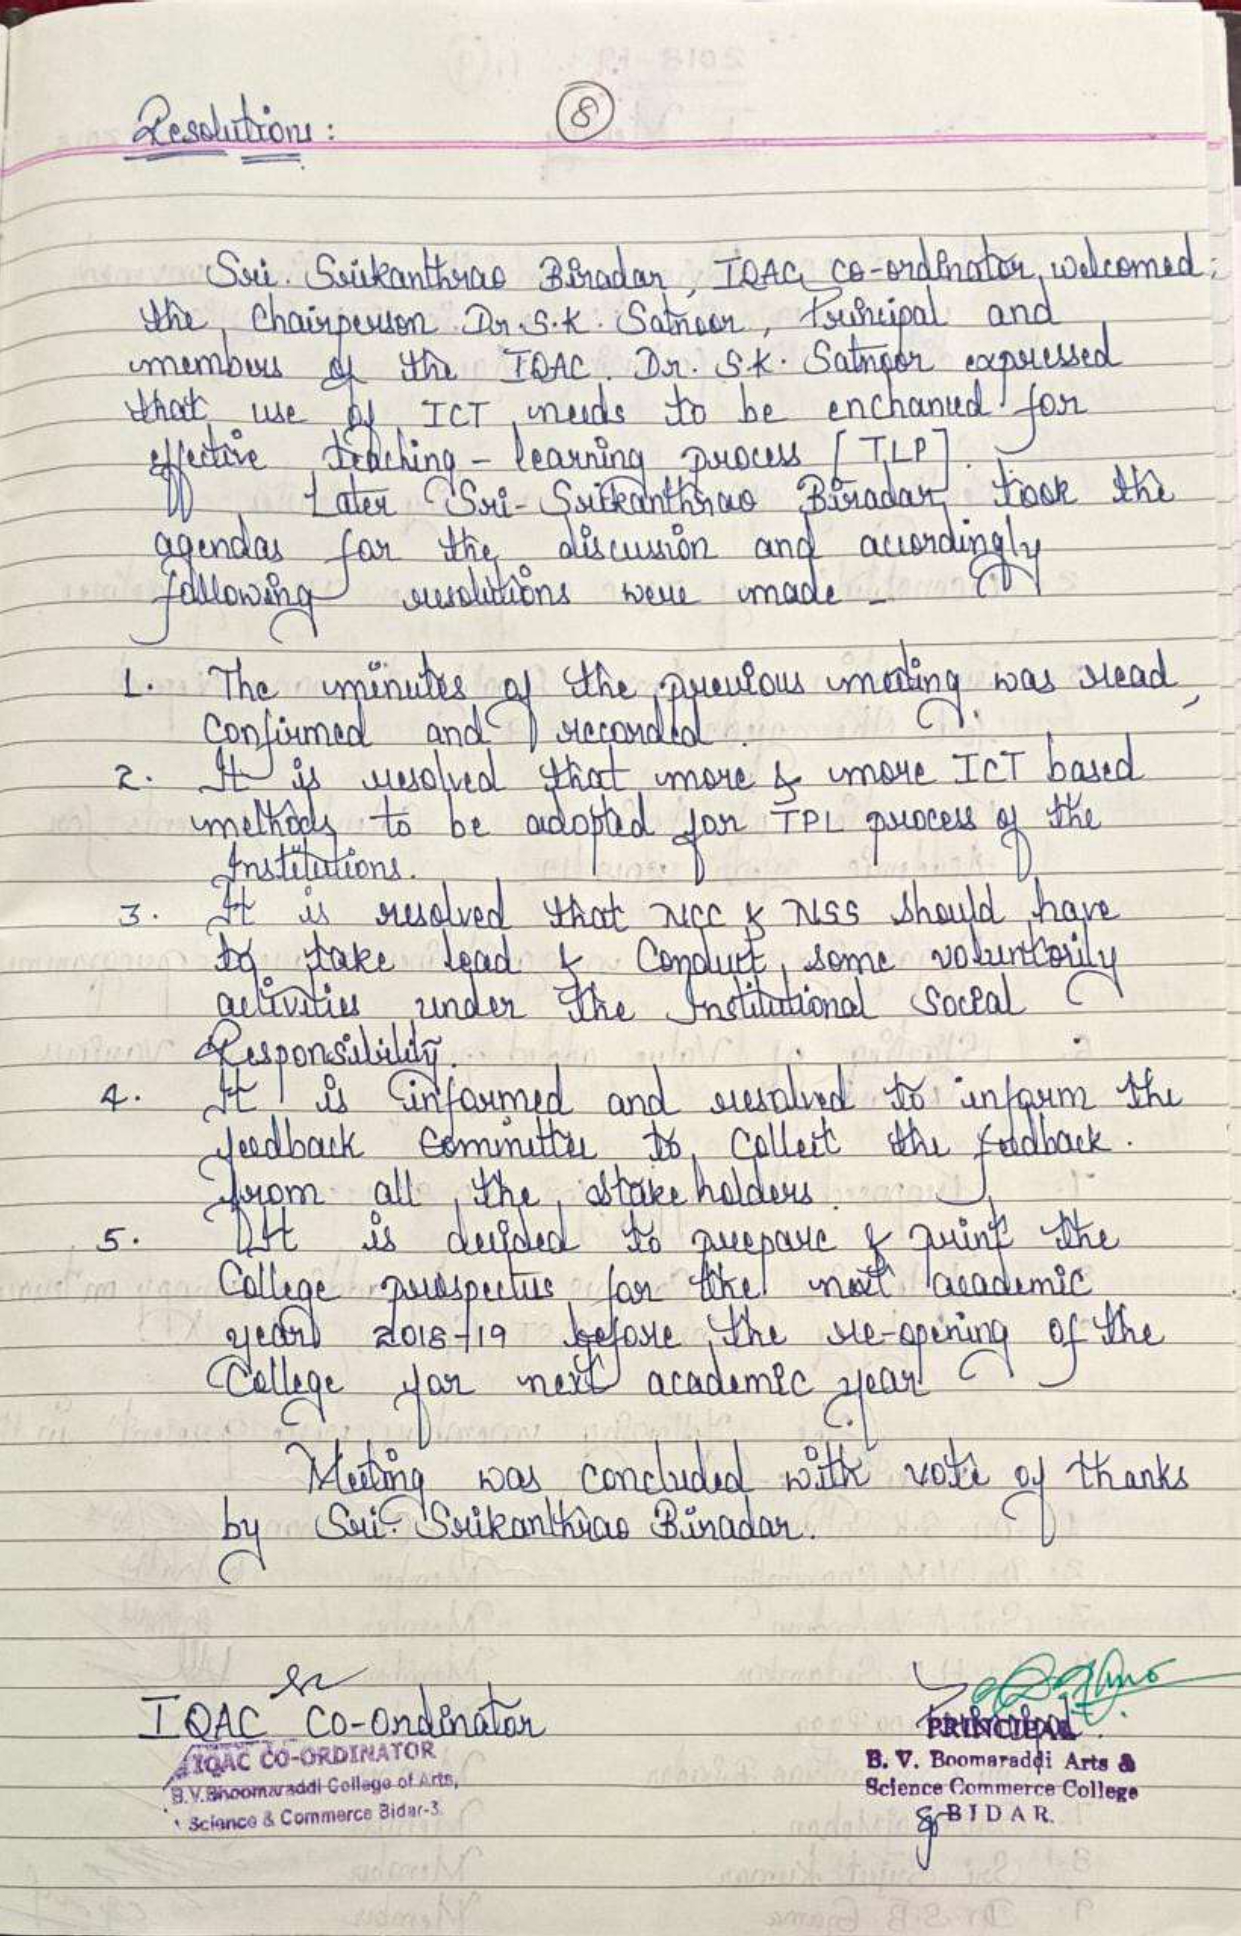 8
Resolutions:
Sri. Srikanthrao Biradar, IQAC co-ordinator, welcomed
the, Chairperson Dr. S.K. Satnoor, Principal and
members of the IQAC. Dr. S.K. Satnoor expressed
that use of ICT needs to be enchanced for
effective teaching - learning process [TLP].
Later Sri- Srikanthrao Biradar took the
agendas for the discussion and accordingly
following resolutions were made -
1. The minutes of the previous meeting was read,
Confirmed and recorded.
2. It is resolved that more & more ICT based
methods to be adopted for TPL process of the
Institutions.
3. It is resolved that NCC & NSS should have
to take lead & Conduct some voluntorily
activities under the Institutional Social
Responsibility.
4. It is informed and resolved to inform the
feedback Committee to Collect the feedback.
from all the stake holders.
5. It is decided to prepare & print the
College prospectus for the next academic
year 2018-19 before the re-opening of the
College for next academic year.
Meeting was concluded with vote of thanks
by Sri. Srikanthrao Biradar.
IQAC Co-Ordinator
IQAC CO-ORDINATOR
B.V.Bhoomaraddi College of Arts,
Science & Commerce Bidar-3.
PRINCIPAL
B. V. Boomaraddi Arts &
Science Commerce College
BIDAR.